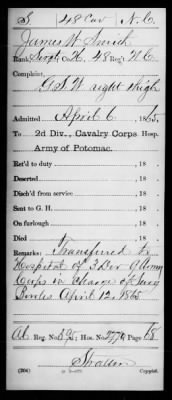 S | 48 Cav | N.C.
James W Smith
Rank, Sergt; Co. H, 48 Reg't N C
Complaint,
G.S.W. right thigh
Admitted April 6, 1865.
To 2d Div., Cavalry Corps Hosp.
Army of Potomac.
Ret'd to duty , 18 .
Deserted , 18 .
Disch'd from service , 18 .
Sent to G. H. , 18 .
On furlough , 18 .
Died , 18 .
Remarks: Transferred to
Hospital of 3 Div 6 Army
Corps in charge of Surg
April 12, 1865
Reg. No. 395; Hos. No. Page 158
(204) Copyist.